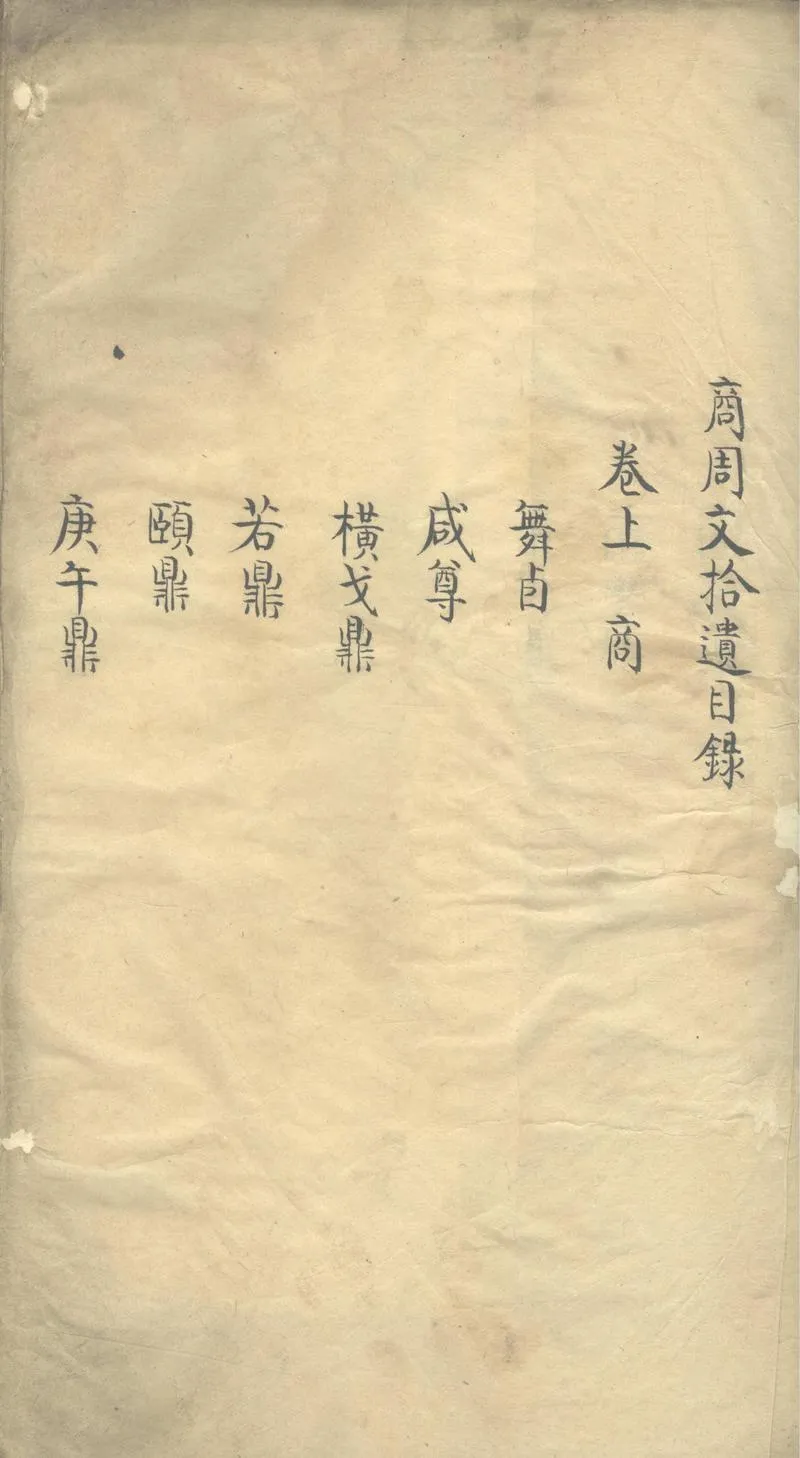 商周文拾遺目録
卷上 商
舞卣
咸尊
橫戈鼎
若鼎
頤鼎
庚午鼎